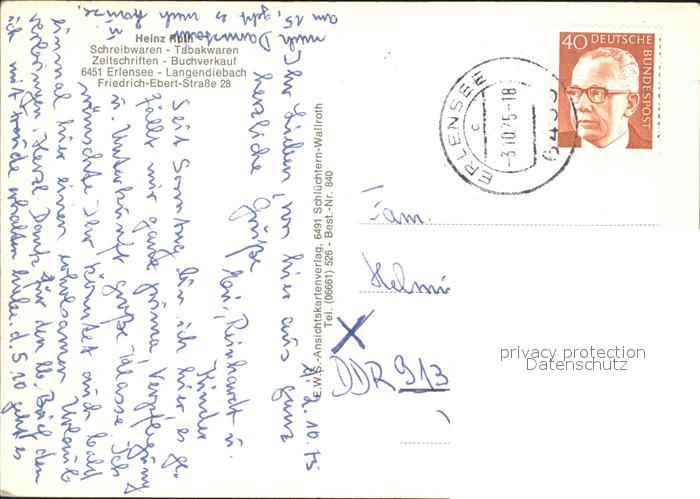 Heinz Ruth
Schreibwaren - Tabakwaren
Zeitschriften - Buchverkauf
6451 Erlensee - Langendiebach
Friedrich-Ebert-Straße 28
E.W.S.-Ansichtskartenverlag, 6491 Schlüchtern-Wallroth
Tel. (06661) 526 - Best.-Nr. 840
40 DEUTSCHE
BUNDESPOST
ERLENSEE
c
-3.10.75-18
6455
d. 2.10.75
Ihr Lieben, von hier aus ganz
herzliche Grüße
Reinhardt u.
Kinder
Seit Sonntag bin ich hier es ge-
fällt mir ganz prima, Verpflegung
u. Unterkunft große Klasse. Ich
wünschte Ihr könntet auch bald
einmal hier einen erholsamen Urlaub
verbringen. Herzl. Dank für den lb. Brief den
ich mit Freude erhalten habe. d. 5.10 geht es
nach
am 15. geht es nach Hause.
Fam.
Helmu
X
DDR 913
privacy protection
Datenschutz